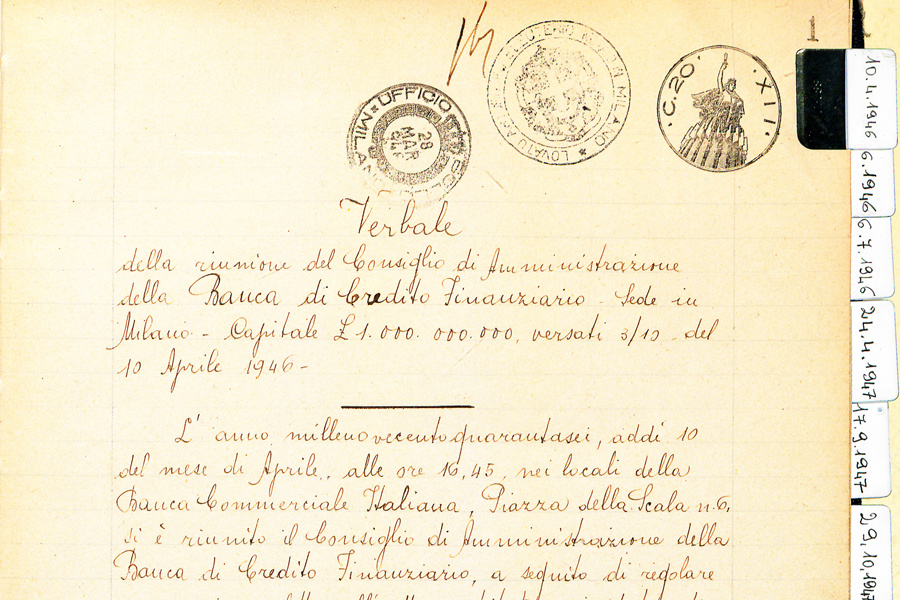 1
UFFICIO BOLLO
28
MAR
MILANO
LOVATO
MILANO
C.20
XII
Verbale
della riunione del Consiglio di Amministrazione
della Banca di Credito Finanziario - Sede in
Milano - Capitale £ 1.000.000.000, versati 3/10 - del
10 Aprile 1946 -
L' anno millenovecentoquarantasei, addì 10
del mese di Aprile, alle ore 16,45, nei locali della
Banca Commerciale Italiana, Piazza della Scala n. 6,
si è riunito il Consiglio di Amministrazione della
Banca di Credito Finanziario, a seguito di regolare
10.4.1946
6.1946
6.7.1946
24.4.1947
17.9.1947
29.10.1947